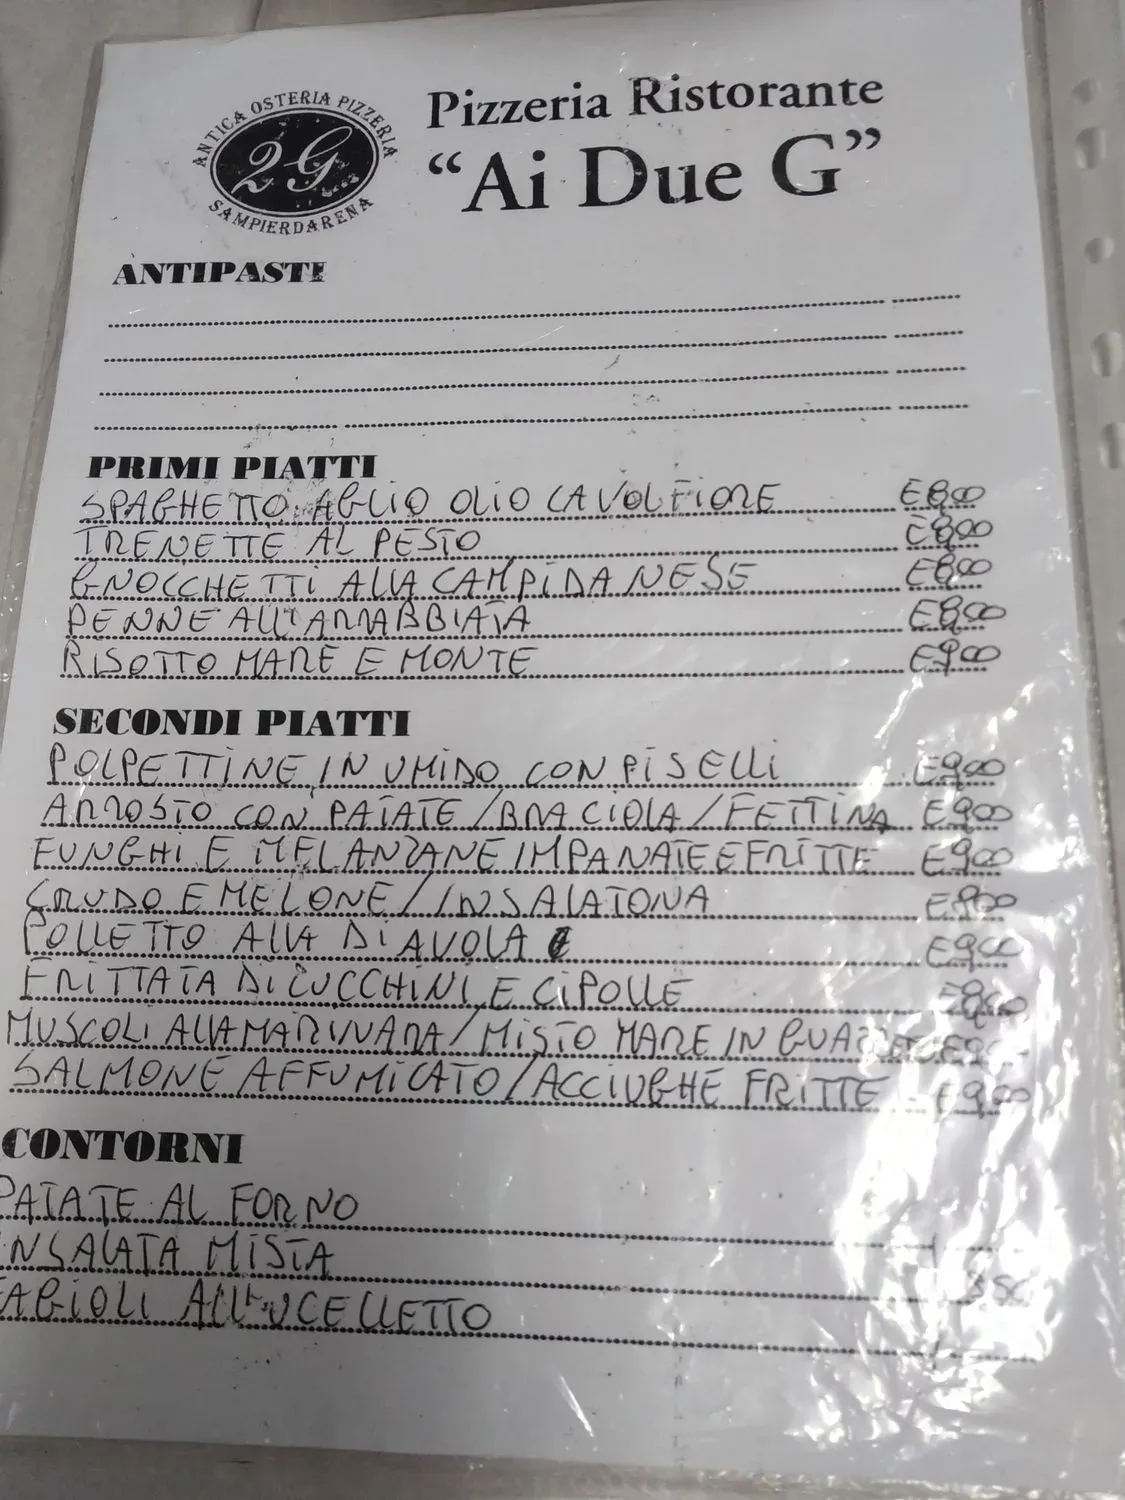 ANTICA OSTERIA PIZZERIA
2G
SAMPIERDARENA
Pizzeria Ristorante
“Ai Due G”
ANTIPASTI
PRIMI PIATTI
SPAGHETTO AGLIO OLIO CAVOLFIORE E8,00
TRENETTE AL PESTO E8,00
GNOCCHETTI ALLA CAMPIDANESE E8,00
PENNE ALL'ARRABBIATA E8,00
RISOTTO MARE E MONTE E9,00
SECONDI PIATTI
POLPETTINE IN UMIDO CON PISELLI E9,00
ARROSTO CON PATATE/BRACIOLA/FETTINA E9,00
FUNGHI E MELANZANE IMPANATE E FRITTE E9,00
CRUDO E MELONE/INSALATONA
POLLETTO ALLA DIAVOLA E9,00
FRITTATA DI ZUCCHINI E CIPOLLE
MUSCOLI ALLA MARINARA/MISTO MARE IN
SALMONE AFFUMICATO/ACCIUGHE FRITTE E9,00
CONTORNI
PATATE AL FORNO
INSALATA MISTA
FAGIOLI ALL'UCELLETTO